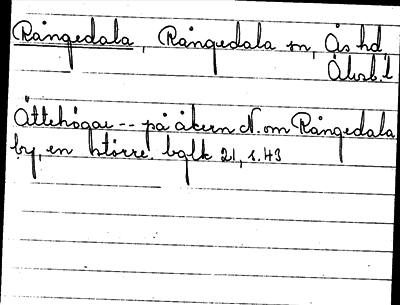 Rångedala, Rångedala sn, Ås hd,
Älvsb. l
Ättehögar -- på åkern N. om Rångedala
by, en större. bglk 21, s. 43